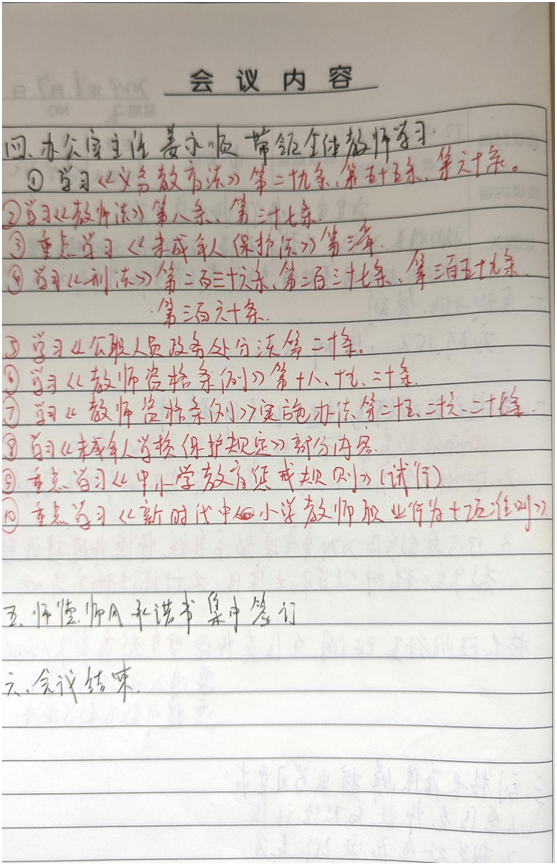 会议内容
四、办公室主任姜永顺带领全体教师学习.
① 学习《义务教育法》第二十九条、第五十五条、第六十条。
②学习《教师法》第八条、第三十七条
③ 重点学习《未成年人保护法》第三章.
④ 学习《刑法》第二百三十六条、第二百三十七条、第三百五十九条.
第三百六十条.
⑤ 学习《公职人员政务处分法第二十条.
⑥ 学习《教师资格条例》第十八、十九、二十条.
⑦ 学习《教师资格条例》》实施办法、第二十五、二十六、二十七条.
⑧ 学习《未成年人学校保护规定》部分内容.
⑨ 重点学习《中小学教育惩戒规则》(试行)
⑩ 重点学习《新时代中小学教师职业行为十项准则》
五.师德师风承诺书集中签订
六、会议结束.